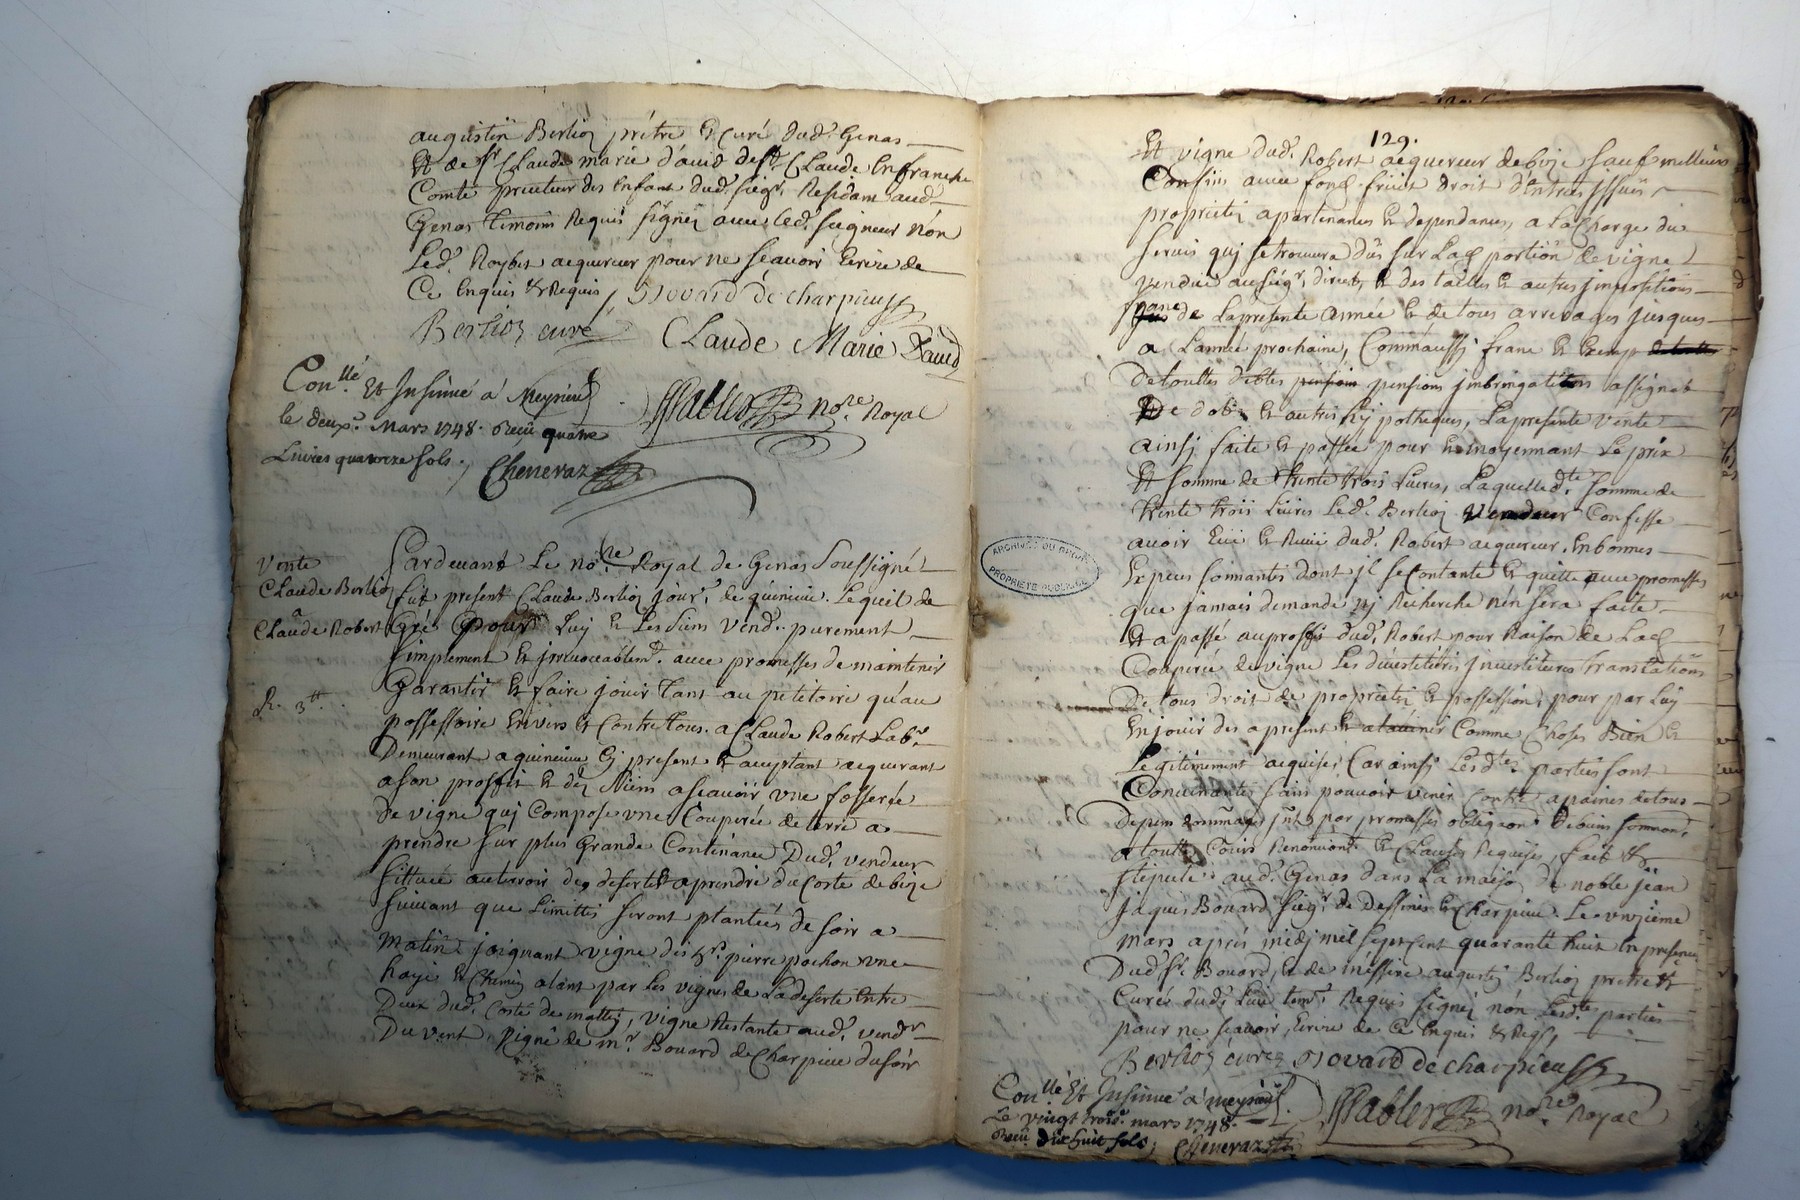 augustin Berlioz prêtre & Curé dud. Genas
Et de Sr Claude marie d'avid de St Claude En franche
Comté precteur des Enfant dud. Seigr. Residant aud.
Genas temoins Requis signéz avec led. seigneur nón
Led. Roybet acquereur pour ne scavoir Ecrire de
Ce Enquis & Requis / Bovard de charpieu
Berlioz curé Claude Marie David
Conllé Et Insinué á Meyzieu
le deux. Mars 1748. Receu quatre
Livres quatorze sols.
Cheneraz
Pabler nore Royal
Vente
Claude Berlioz
a
Claude Robert
R. 3tt
Pardevant Le nore Royal de Genas Soussigné
fut present Claude Berlioz jour. de quincieu. Lequel de
Gré pour Luy & Les Siens vend. purement
simplement & jrrevocablemt. avec promesses de maintenir
Garantir & faire jouir tant au petitoire qu'au
possessoire Envers & Contre tous. a Claude Robert Labr.
Demeurant a quincieu Cy present & acceptant acquerant
a son proffit & des siens a scavoir vne fosserée
de vigne qui Compose vne Couperée de terre a
prendre sur plus Grande Contenance Dud. vendeur
sittuée au terroir des deserte & aprendre du Costé de bize
suivant que Limittes seront plantées de soir a
matin joignant vigne des hrs. pierre pochon vne
haye & Chemin alant par les vignes de La deserte Entre
Deux dud. Costé de mattin, vigne Restante aud. vendr
Du vent, vigne de mr. Bovard de Charpieu du soir
129.
Et vigne dud. Robert acquereur de bize sauf melleurs
Confins avec fond fruict droit d'Entrées jssües
proprietéz apartenances & dependances, a La Charge du
servis qui se trouvera dûs sur Lad. portion de vigne
vendüe au seigr. direct, & des tailles & autres jmpositions
de Lapresente année & de tous arrerages jusques
a L'année prochaine, Comm'aussy franc & Exempt
de touttes debtes pensions assignat
De dot & autres hypotheques, La presente vente
ainsy faite & passée pour & moyennant Le prix
Et somme de trente trois Livres, Laquelledte. somme de
trente trois Livres Led. Berlioz vendeur Confesse
avoir Eüe & Reçüe dud. Robert acquereur. En bonnes
Especes sonnantes dont jl se Contante & quitte avec promesses
que jamais demande ny Recherche n'en sera faite
Et a passé au proffit dud. Robert pour Raison de Lad.
Couperée de vigne Les divestitures jnvestitures translations
De tous droit de proprietéz & possession, pour par Luy
En jouir des a present & a l'avenir Comme Choses Bien &
Legitimement acquises, Car ainsy Lesdtes parties sont
Convenantes sans pouvoir venir Contre a paines de tous
Depens
a touttes Cours Renonçiant & Clauses Requises, fait &
stipulé aud. Genas dans La maison de noble jean
jaques Bovard seigr. de Dessines & Charpieu. Le vnzieme
mars aprés midy mil sept cent quarante huit En presence
Dud. Sr. Bovard, & de messire augustin Berlioz prêtre &
Curés dud. Lieu temt. Requis signéz nón Lesdte. parties
pour ne scavoir Ecrire de Ce Enquis & Reqs,
Berlioz curéz Bovard de charpieu
Conllé Et Insinué á meyzieu.
Le vingt trois. mars 1748.
Receu dix huit sols, Cheneraz
Pabler nore. Royal
ARCHIVES DU RHÔNE
PROPRIÉTÉ PUBLIQUE